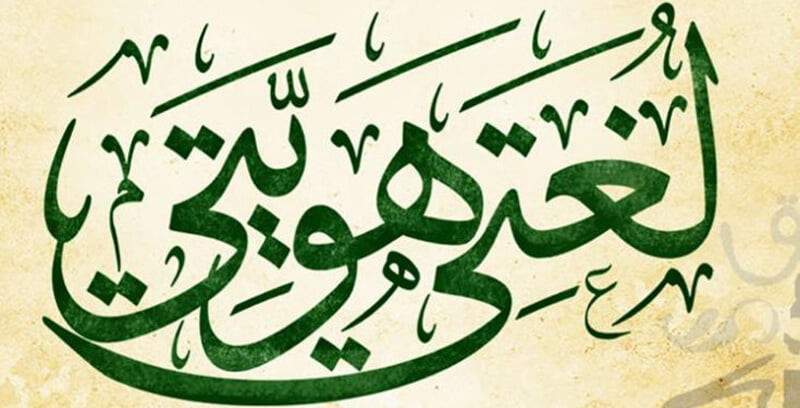 لُغَتِي هويّتي